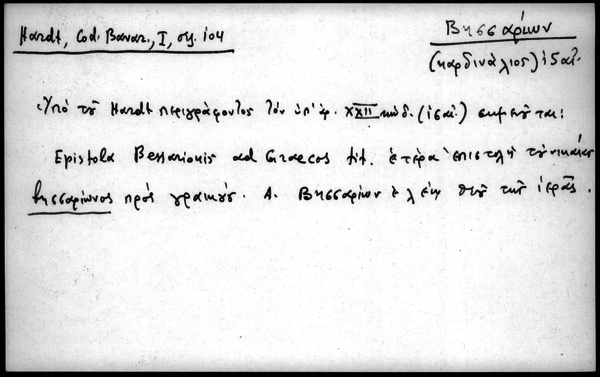 Hardt, Cod. Bavar., I, σελ. 104
Βησσαρίων
(καρδινάλιος) ις αἰ.
Ὑπὸ τοῦ Hardt περιγράφοντος τὸν ὑπ' ἀρ. XXII κώδ. (ις αἰ.) σημειοῦται:
Epistola Bessarionis ad Graecos tit. ἑτέρα ἐπιστολὴ τοῦ νικαίας
βησσαρίωνος πρὸς γραικούς. A. Βησσαρίων ἐλέῳ θεοῦ τῆς ἱερᾶς.